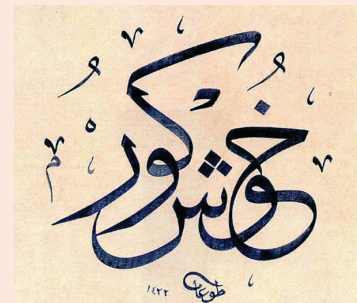 خوش گور
١٤٢٢